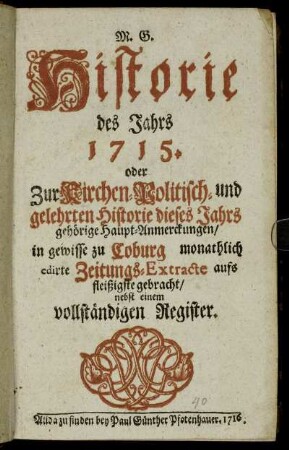 M. G.
Historie
des Jahrs
1715.
oder
Zur Kirchen-Politisch- und
gelehrten-Historie dieses Jahrs
gehörige Haupt-Anmerckungen/
in gewisse zu Coburg monathlich
edirte Zeitungs-Extracte aufs
fleißigste gebracht/
nebst einem
vollständigen Register.
Allda zu finden bey Paul Günther Pfotenhauer. 1716.